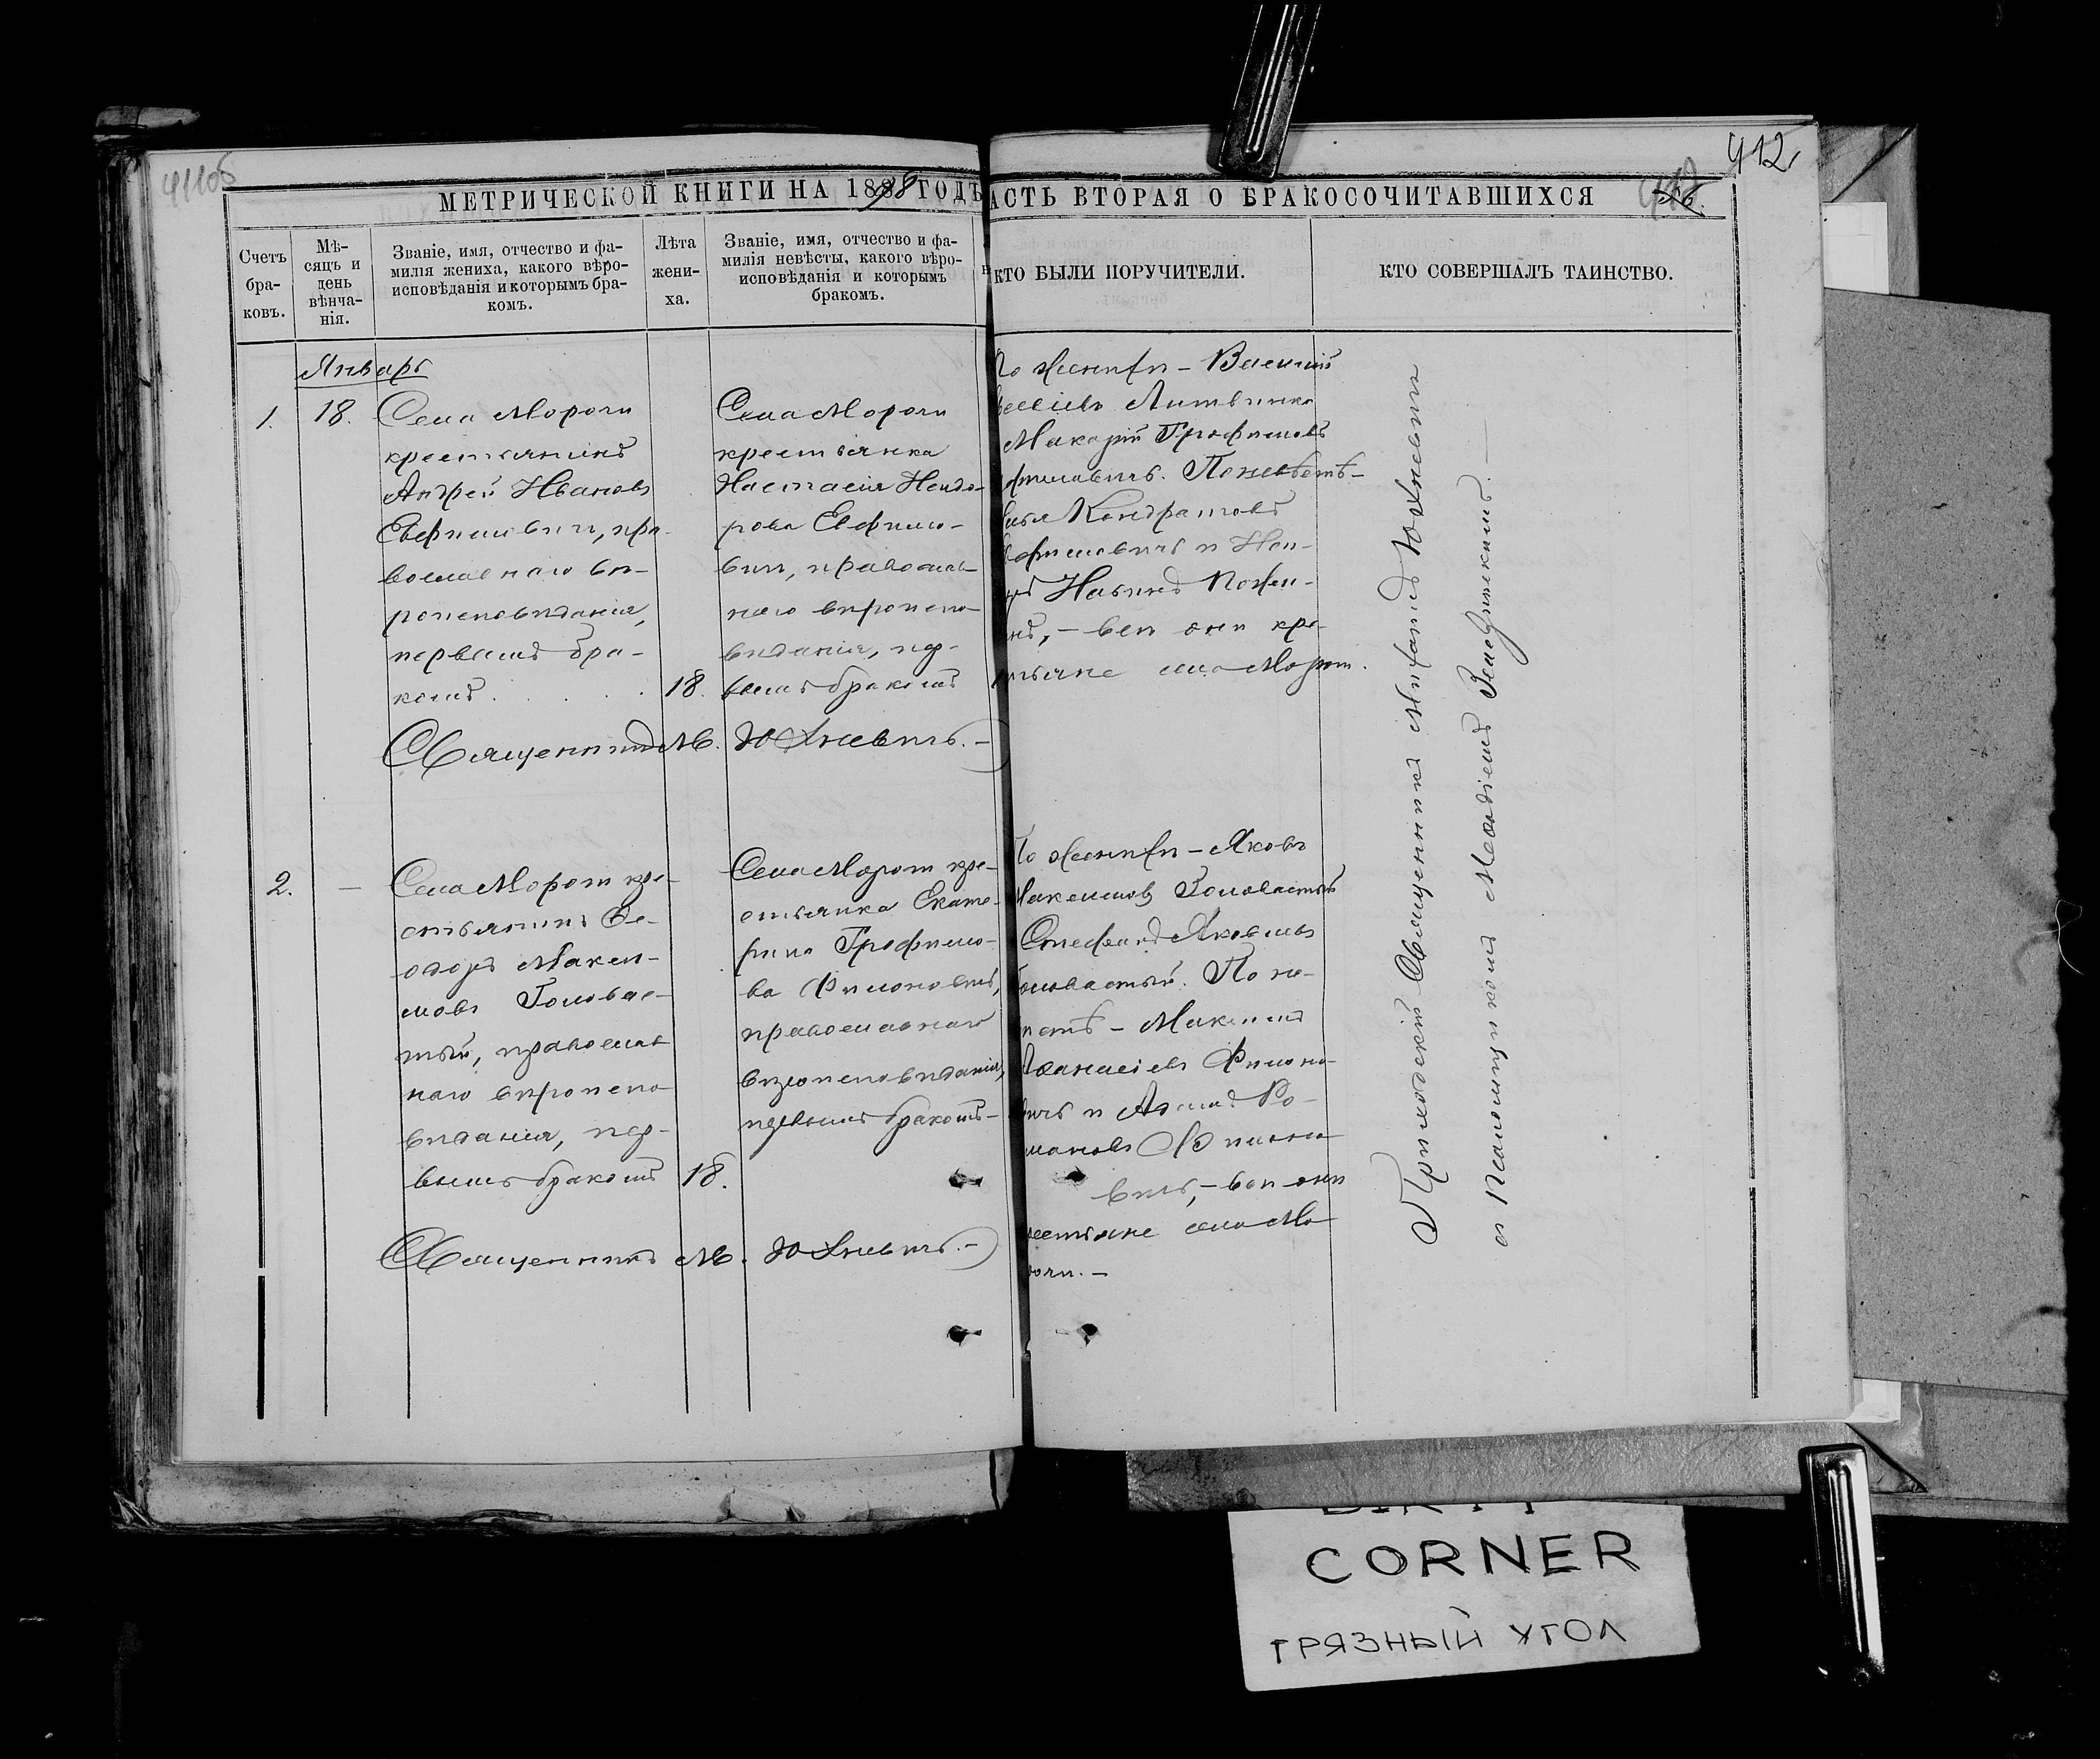 411об
412
МЕТРИЧЕСКОЙ КНИГИ НА 1888 ГОДЪ
АСТЬ ВТОРАЯ О БРАКОСОЧИТАВШИХСЯ
Счетъ
бра-
ковъ.
Мѣ-
сяцъ и
день
вѣнча-
нія.
Званіе, имя, отчество и фа-
милія жениха, какого вѣро-
исповѣданія и которымъ бра-
комъ.
Лѣта
жени-
ха.
Званіе, имя, отчество и фа-
милія невѣсты, какого вѣро-
исповѣданія и которымъ
бракомъ.
КТО БЫЛИ ПОРУЧИТЕЛИ.
КТО СОВЕРШАЛЪ ТАИНСТВО.
Январь
1.
18.
Села Морочи
крестьянинъ
Андрей Ивановъ
Евфимовичъ, пра-
вославнаго вѣ-
роисповѣданія,
первымъ бра-
комъ
18.
Села Морочи
крестьянка
Настасія
рова Евфимо-
вичъ, православ-
наго вѣроиспо-
вѣданія, пер-
вымъ бракомъ
По женихѣ – Василій
Литвинко
Макарій Трофимовъ
По невѣстѣ –
Кондратовъ
офимовичъ и
– всѣ они кре-
стьяне села Мороч.
Священникъ М. Юхневичъ. –
2.
–
Села Мороч кре-
стьянинъ Ѳе-
одоръ Макси-
мовъ Головас-
тый, православ
наго вѣроиспо-
вѣданія, пер-
вымъ бракомъ
18.
Села Мороч кре-
стьянка Екате-
рина Трофимо-
ва Филоновичъ,
православнаго
вѣроисповѣданія,
первымъ бракомъ –
По женихѣ – Яковъ
Максимовъ Головастый
Стефанъ Яковлевъ
Головастый. По не-
вѣстѣ – Максимъ
Аѳанасіевъ Филоно-
вичъ и Адамъ Ро-
мановъ Филоно
вичъ, – всѣ они
крестьяне села Мо
рочи. –
Священникъ М. Юхневичъ. –
Приходскій Священникъ Митрофанъ Юхневичъ
съ Псаломщикомъ Меѳодіемъ
CORNER
ГРЯЗНЫЙ УГОЛ